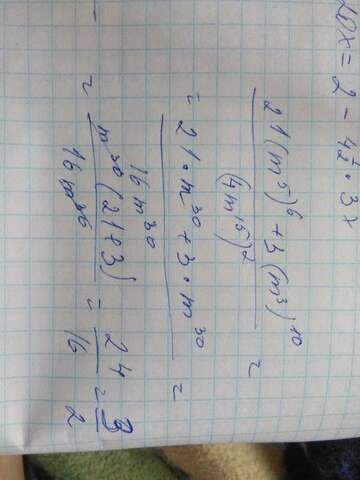 20x = 2 - 42 · 3x
21(m⁵)⁶ + 3(m³)¹⁰
(4m¹⁵)²
=
= 21·m³⁰ + 3·m³⁰
16m³⁰
=
= m³⁰(21+3)
16m³⁰
= 24
16
= 3
2